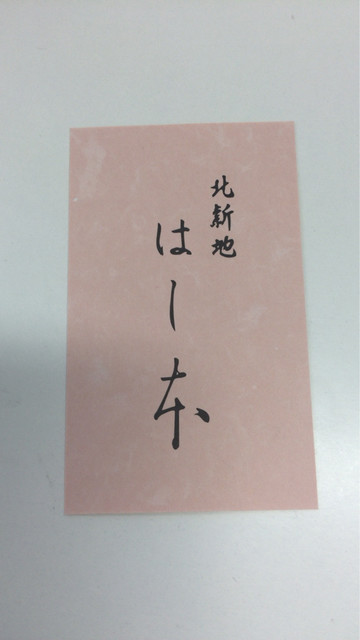 北新地
はし本